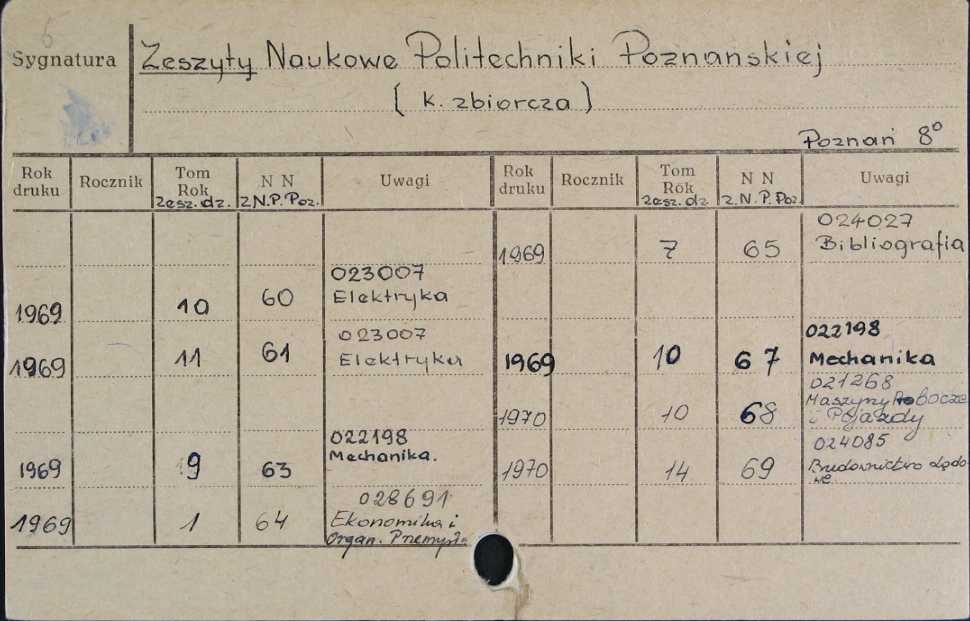 6
Sygnatura Zeszyty Naukowe Politechniki Poznańskiej
( k. zbiorcza )
Poznań 8°
Rok druku Rocznik Tom Rok zesz. dz. N N Z.N.P.Poz. Uwagi Rok druku Rocznik Tom Rok zesz. dz N N Z.N.P.Poz. Uwagi
1969 10 60 023007 Elektryka
1969 11 61 023007 Elektryka
1969 9 63 022198 Mechanika.
1969 1 64 028691 Ekonomika i
Organ. Przemysła
1969 7 65 024027 Bibliografia
1969 10 67 022198 Mechanika
1970 10 68 021268 Maszyny Robocze
i Pojazdy
1970 14 69 024085 Budownictwo Lądo
we